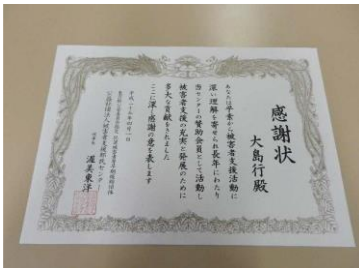 感謝状
大島行殿
あなたは平素から被害者支援活動に
深い理解を寄せられ長年にわたり
当センターの賛助会員として活動し
被害者支援の充実と発展のために
多大な貢献をされました
ここに深く感謝の意を表します
平成二十五年四月一日
公益社団法人被害者支援都民センター
理事長 渥美東洋